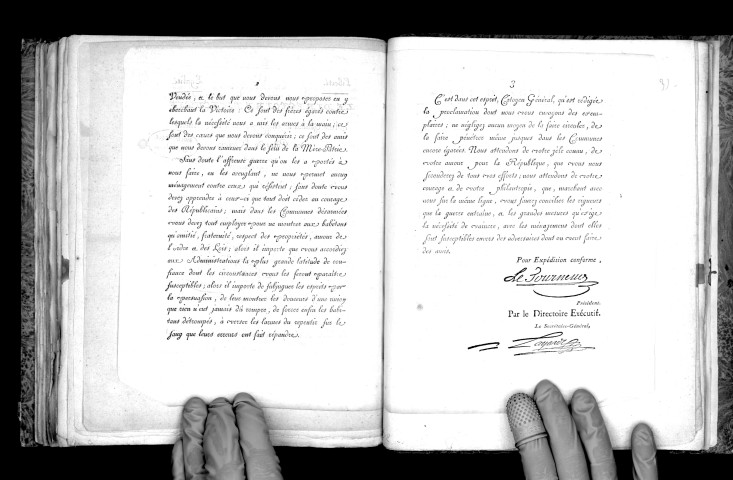 2
Vendée, et le but que nous devons nous proposer en y
cherchant la Victoire : Ce sont des frères égarés contre
lesquels la nécessité nous a mis les armes à la main ; ce
sont des cœurs que nous devons conquérir ; ce sont des amis
que nous devons ramener dans le sein de la Mère-Patrie.
Sans doute l'affreuse guerre qu'on les a portés à
nous faire, en les aveuglant, ne nous permet aucun
ménagement contre ceux qui résistent ; sans doute vous
devez apprendre à ceux-ci que tout doit céder au courage
des Républicains ; mais dans les Communes désarmées
vous devez tout employer pour ne montrer aux habitans
qu'amitié, fraternité, respect des propriétés, amour de
l'ordre et des Lois ; alors il importe que vous accordiez
aux Administrations la plus grande latitude de con-
fiance dont les circonstances vous les feront paraître
susceptibles ; alors il importe de subjuguer les esprits par
la persuasion, de leur montrer les douceurs d'une union
que rien n'eut jamais dû rompre, de forcer enfin les habi-
tans détrompés, à verser les larmes du repentir sur le
sang que leurs erreurs ont fait répandre.
3
C'est dans cet esprit, Citoyen Général, qu'est rédigée
la proclamation dont nous vous envoyons des exem-
plaires ; ne négligez aucun moyen de la faire circuler, de
la faire pénétrer même jusques dans les Communes
encore égarées. Nous attendons de votre zèle connu, de
votre amour pour la République, que vous nous
seconderez de tous vos efforts ; nous attendons de votre
courage et de votre philantropie, que, marchant avec
nous sur la même ligne, vous saurez concilier les rigueurs
que la guerre entraîne, et les grandes mesures qu'exige
la nécessité de vaincre, avec les ménagemens dont elles
sont susceptibles envers des adversaires dont on veut faire
des amis.
Pour Expédition conforme,
Le Tourneur
Président.
Par le Directoire Exécutif.
Le Secrétaire-Général,
Lagarde